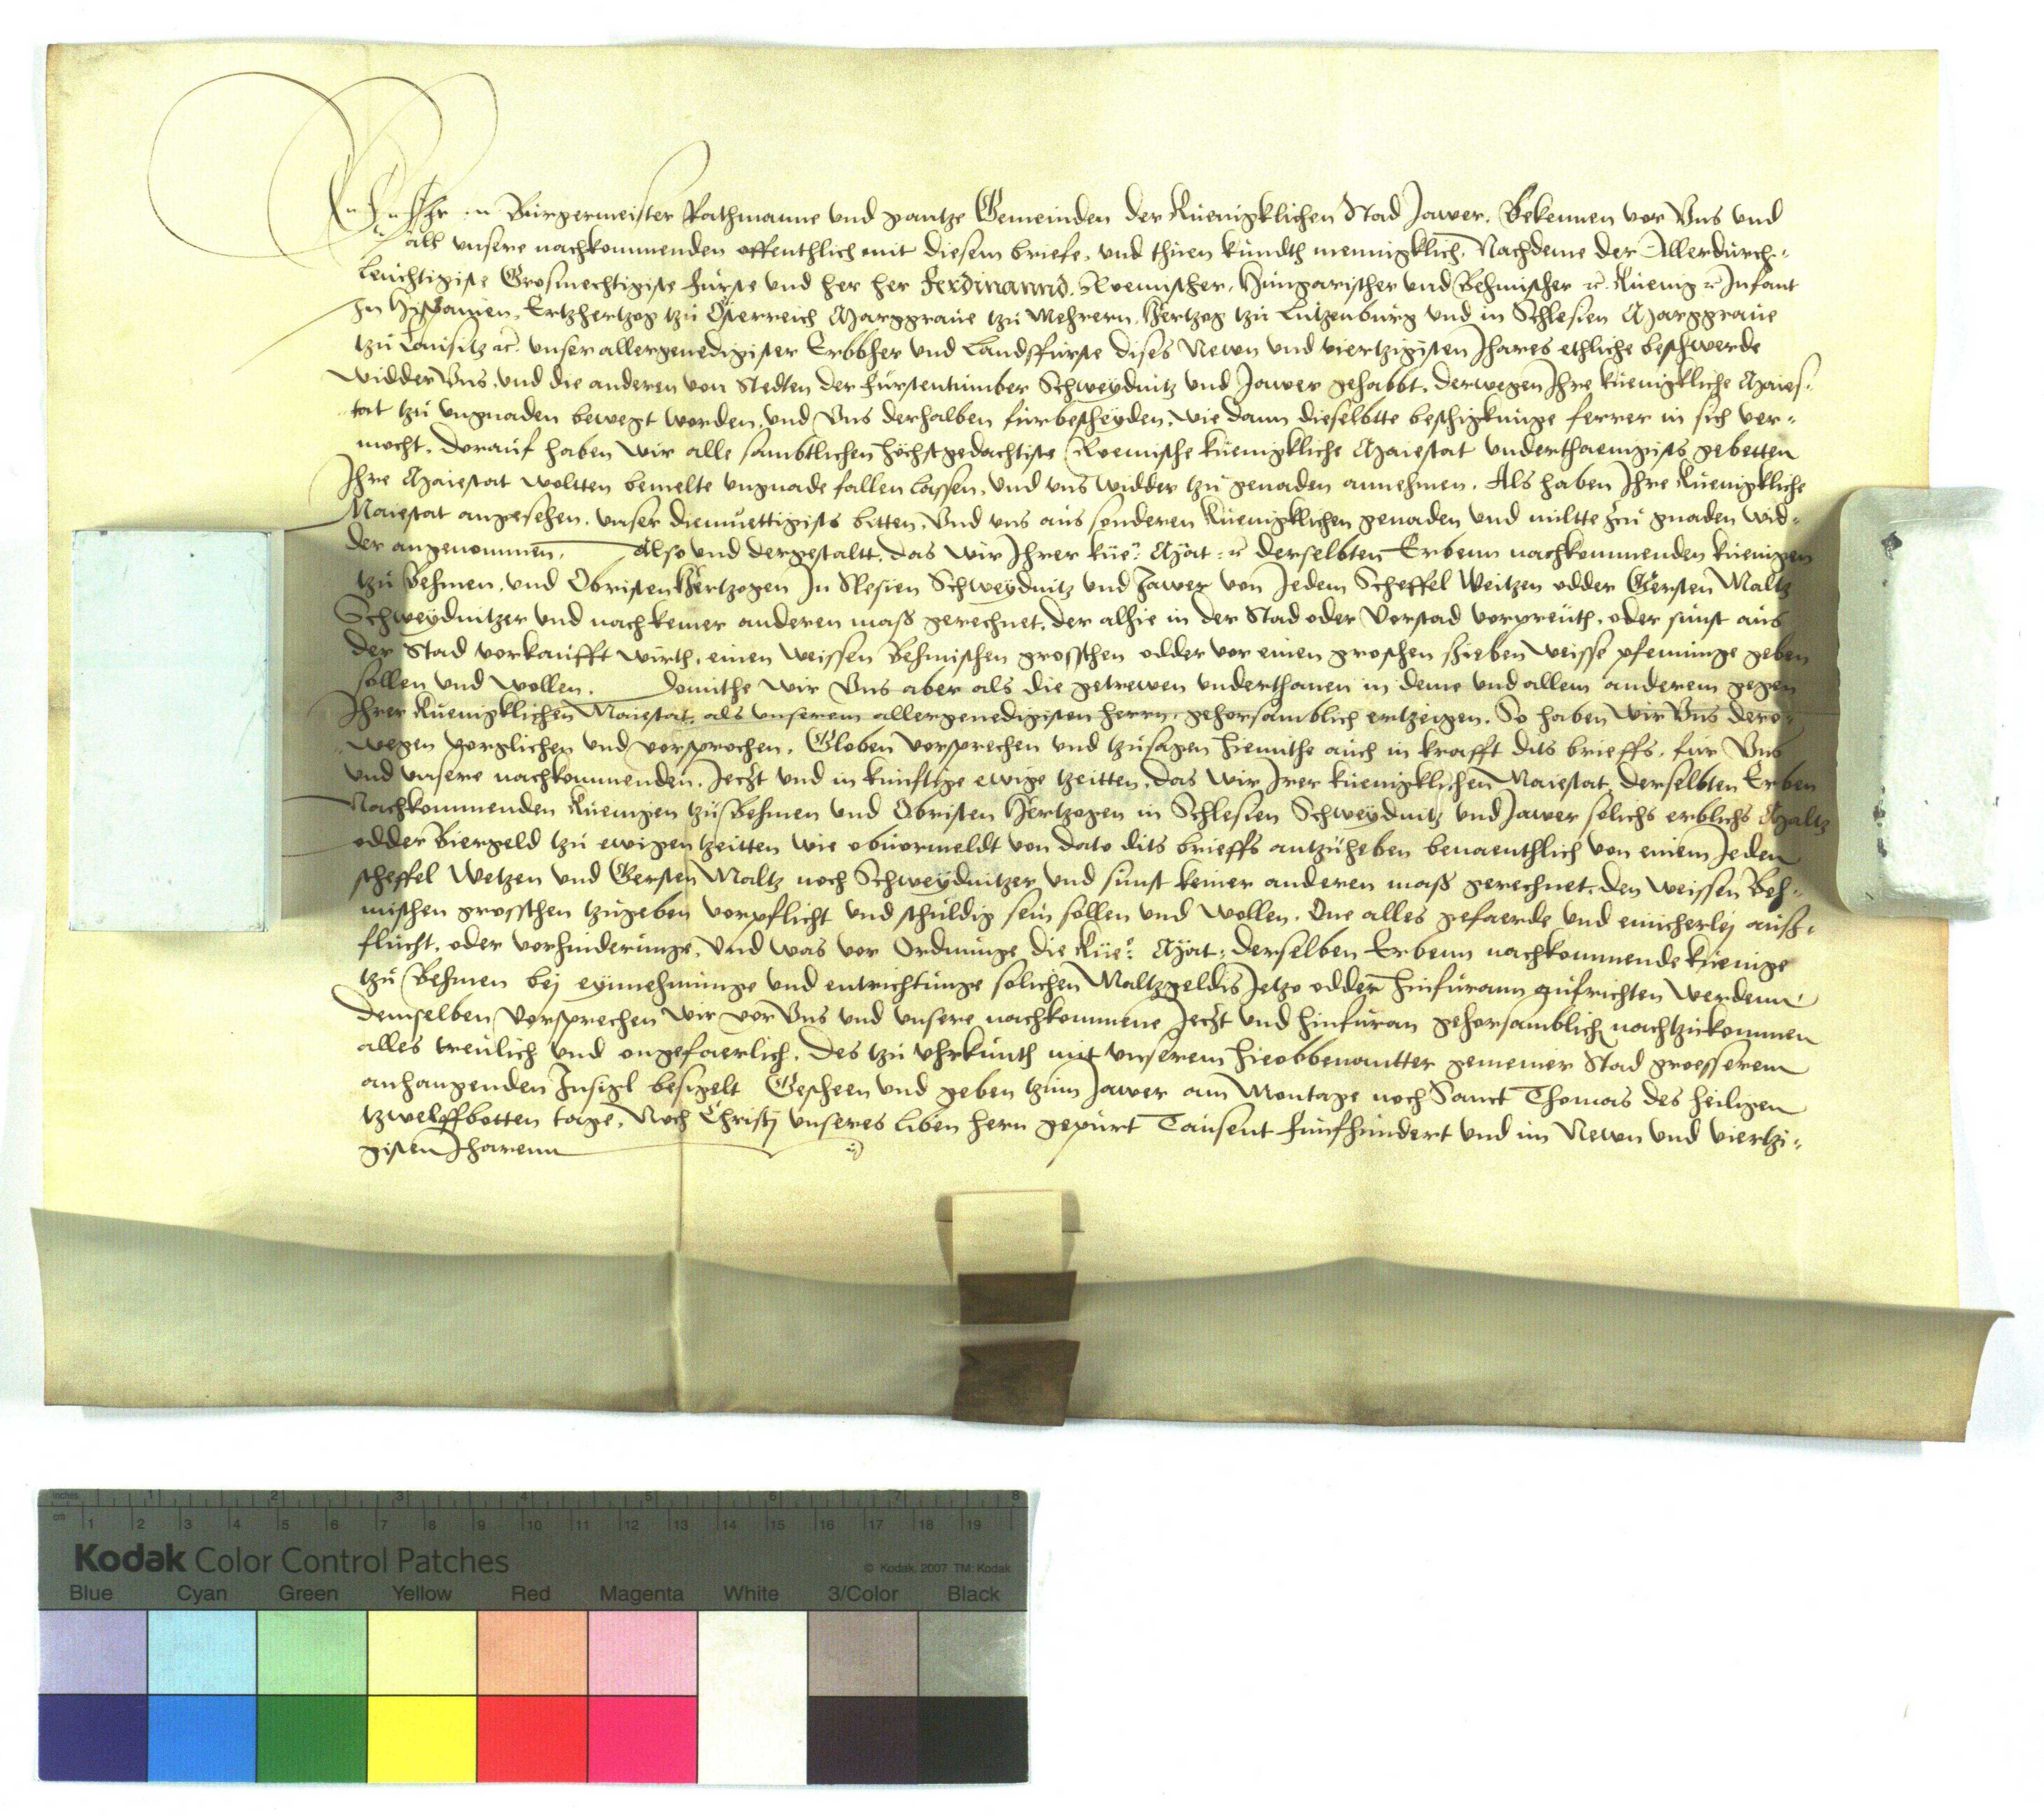 Wir Burgermeister Rathmanne und gantze Gemeinden der Kuenigklichen Stad Jawer. Bekennen vor Uns und
all unsere nachkommenden offenthlich mit diesem briefe, und thuen kundth mennigklich, Nachdeme der Allerdurch-
leuchtigiste Grosmechtigiste Furste und her her Ferdinannd. Roemischer, Hungarischer und Behmischer rc. Kuenig rc Infant
In Hispanien, Ertzhertzog tzu Osterreich Marggraue tzu Mehrern, Hertzog tzu Lutzenburg und in Schlesien Marggraue
tzu Lausitz rc. unser allergenedigister Erbbher und Landsfurste dises Newn und viertzigisten Jhares ethliche beschwerde
widder Uns, und die anderen von Stedten der Furstentumber Schweydnitz und Jawer gehabbt, derwegen Ihre kuenigkliche Maies-
tat tzu ungnaden bewegt worden, und Uns derhalben furbescheyden, wie dann dieselbtte beschigkunge ferrer in sich ver-
mocht, dorauf haben wir alle sambtlichen höchstgedachtiste Roemische kuenigkliche Maiestat underthaenigists gebetten
Ihre Maiestat woltten bemelte ungnade fallen lassen, und uns widder tzu genaden annehmen. Als haben Ihre Kuenigkliche
Maiestat angesehen, unser diemuettigists bitten, Und uns aus sonderen Kuenigklichen genaden und miltte zcu gnaden wid-
der angenommen. Also und dergestaltt, das wir Ihrer kue: Mat: rc derselbten Erbenn nachkommenden kuenigen
tzu Behmen, und Obristen Hertzogen In Slesien Schweydnitz und Jawer von Jedem Scheffel Weitzen odder Gersten Maltz
Schweydnitzer und nach keiner anderen maß gerechnet, der alhie in der Stad oder Vorstad vorpreuth, oder sunst aus
der Stad vorkaufft wirth, einen weissen Behmischen grosschen odder vor einen groschen sieben weisse pfenninge geben
sollen und wollen. Domithe wir Uns aber als die getrewen underthanen in deme und allem anderem gegen
Ihrer Kuenigklichen Maiestat, als unserem allergenedigisten herrn, gehorsamblich ertzeigen. So haben wir Uns dero-
wegen vorglichen und vorsprochen, Globen vorsprechen und tzusagen hiemithe auch in krafft dits brieffs, fur Uns
und unsere nachkommenden, Jeczt und in kunftige ewige tzeitten, das wir Irer kuenigklichen Maiestat, derselbten Erben
Nachkommenden Kuenigen tzu Behmen und Obristen Hertzogen in Schlesien Schweydnitz und Jawer solichs erblichs Maltz
odder Biergeld tzu ewigen tzeitten wie obuormeldt von dato dits brieffs antzuheben benaenthlich von einem Jeden
scheffel Wetzen und Gersten Maltz noch Schweydnitzer und sunst keiner anderen maß gerechnet, den weissen Beh-
mischen grosschen tzugeben vorpflicht und schuldig sein sollen und wollen. One alles gefaerde und einicherley auß-
flucht, oder vorhinderunge, Und was vor Ordnunge die Kue: Mat: derselben Erbenn nachkommende kuenige
tzu Behmen bej eynnehmunge und entrichtunge solichen Maltzgeldis Jetzo odder hinfurann aufrichten werdenn
demselben Vorsprechen wir vor Uns und unsere nachkommene Jeczt und hinfuran gehorsamblich nachtzukommen
alles treulich und ongefaerlich. Des tzu uhrkunth mit unserem hieobbenantter gemeiner Stad groesserem
anhangenden Insigl besigelt Gescheen und geben tzum Jawer am Montage noch Sanct Thomas des heiligen
tzwelffbotten tage, Noch Christj unseres liben hern gepurt Tausent funfhundert und im Newn und viertzi-
gisten Jharenn
inches 1 2 3 4 5 6 7 8
cm 1 2 3 4 5 6 7 8 9 10 11 12 13 14 15 16 17 18 19
Kodak Color Control Patches © Kodak, 2007 TM: Kodak
Blue Cyan Green Yellow Red Magenta White 3/Color Black